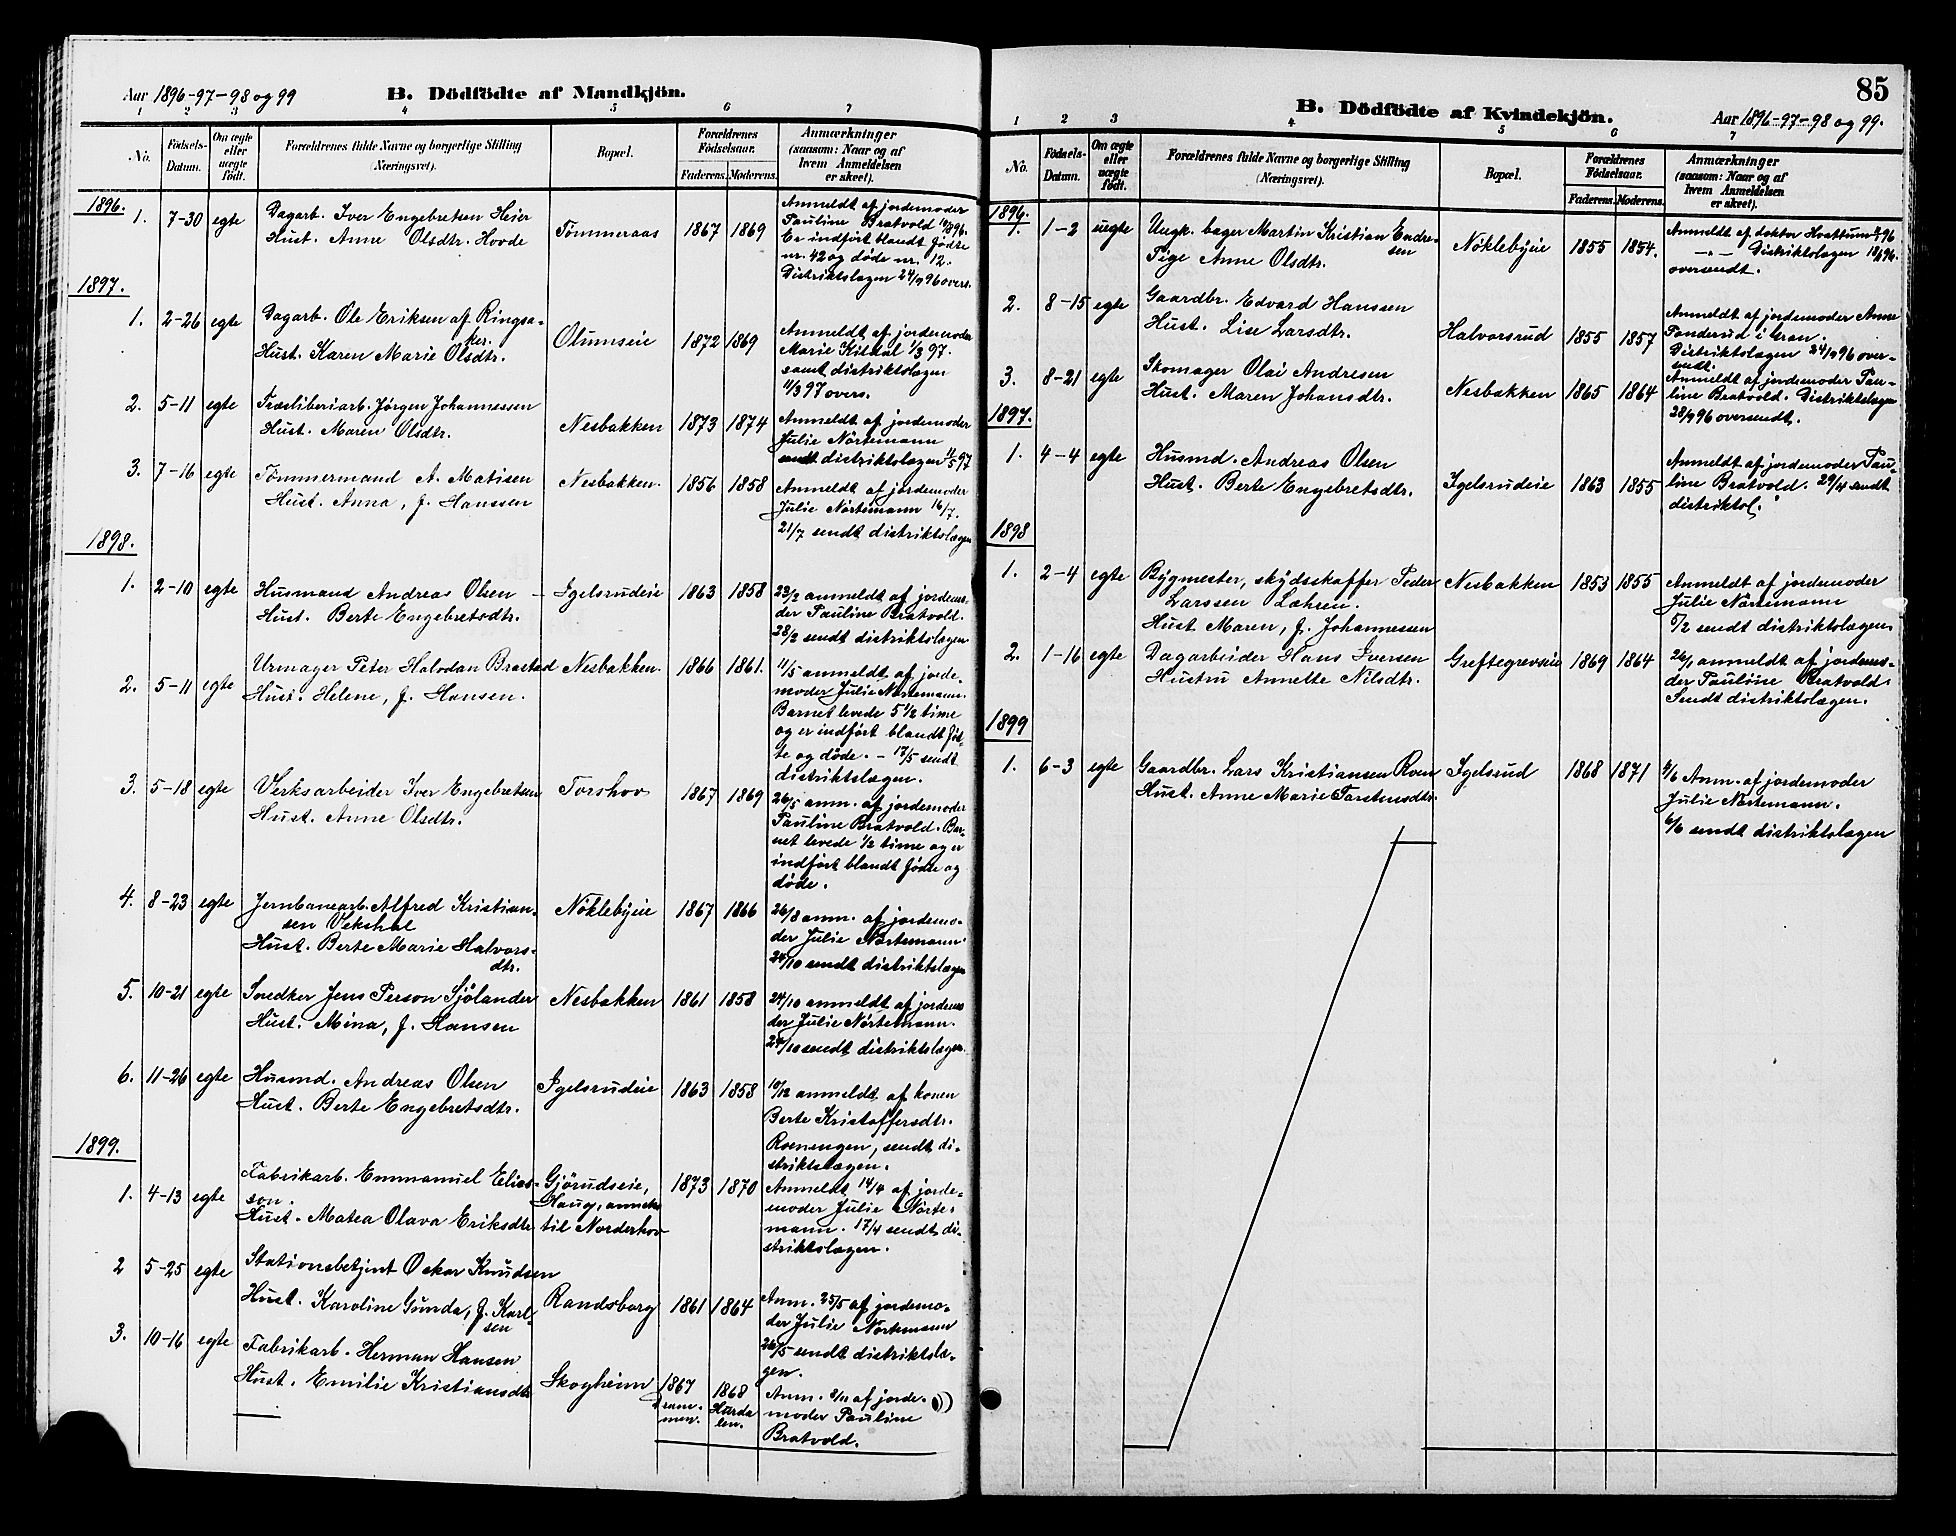 Aar 1896-97-98 og 99
B. Dödfödte af Mandkjön.
1 2 3 4 5 6 7
No.
Födsels-Datum.
Om ægte eller uægte födt.
Forældrenes fulde Navne og borgerlige Stilling (Næringsvei).
Bopæl.
Forældrenes Födselsaar.
Faderens. Moderens.
Anmærkninger (saasom: Naar og af hvem Anmeldelsen er skeet).
1896.
1. 7-30 egte Dagarb. Iver Engebretsen Heier
Hust. Anne Olsdtr. Hovde
Tömmeraas 1867 1869
Anmeldt af jordemoder
Pauline Bratvold
Er indfört blandt födte
nr. 42 og döde nr. 12.
Distriktslægen 24/9 96 overs.
1897.
1. 2-26 egte Dagarb. Ole Eriksen af Ringsa-
ker.
Hust. Karen Marie Olsdtr.
Olumseie 1872 1869
Anmeldt af jordemoder
Marie Kilhol 1/3 97.
samt distriktslægen
11/3 97 overs.
2. 5-11 egte Træsliberiarb. Jörgen Johannessen
Hust. Maren Olsdtr.
Nesbakken 1873 1874
Anmeldt af jordemoder
Julie Nörtemann
distriktslægen 11/5 97
3. 7-16 egte Tömmermand A. Matisen
Hust. Anna, f. Hanssen
Nesbakken. 1856 1858
Anmeldt af jordemoder
Julie Nörtemann 16/7.
21/7 sendt distriktslægen
1898.
1. 2-10 egte Husmand Andreas Olsen –
Hust. Berte Engebretsdtr.
Igelsrudeie 1863 1858
22/2 anmeldt af jordemo-
der Pauline Bratvold.
28/2 sendt distriktslægen
2. 5-11 egte Urmager Peter Halvdan Brastad
Hust. Helene, f. Hansen.
Nesbakken. 1866 1861.
11/5 anmeldt af jorde-
moder Julie Nörtemann.
Barnet levede 5 1/2 time
og er indfört blandt föd-
te og döde. – 17/5 sendt
distriktslægen.
3. 5-18 egte Verksarbeider Iver Engebretsen
Hust. Anne Olsdtr.
Torshov 1867 1869
26/5 anm. af jordemoder
Pauline Bratvold. Bar-
net levede 1/2 time og er
indfört blandt födte og
döde.
4. 8-23 egte Jernbanearb. Alfred Kristian-
sen Vekshal
Hust. Berte Marie Halvors-
dtr.
Nöklebyeie 1867 1866
26/8 anm. af jordemo-
der Julie Nörtemann.
24/10 sendt distriktslægen
5. 10-21 egte Snedker Jens Person Sjölander
Hust. Mina, f. Hansen
Nesbakken 1861 1858
24/10 anmeldt af jordemo
der Julie Nörtemann.
24/10 sendt distriktslægen.
6. 11-26 egte Husmd. Andreas Olsen
Hust. Berte Engebretsdtr.
Igelsrudeie 1863 1858
10/12 anmeldt af konen
Berte Kristoffersdtr.
Roenengen, sendt di-
striktslægen.
1899.
1. 4-13 egte Fabrikarb. Emmanuel Elias-
son.
Hust. Matea Olava Eriksdtr
Gjörudseie,
Haug, anneks
til Norderhov
1873 1870
Anmeldt 14/4 af jorde-
moder Julie Nörte-
mann. 17/4 sendt di-
striktslægen.
2 5-25 egte Stationsbetjent Oskar Knudsen
Hust. Karoline Gunda, f. Karl-
sen
Randsborg 1861 1864
Anm. 25/5 af jordemo-
der Julie Nörtemann
26/5 sendt distriktslæ-
gen.
3. 10-16 egte Fabrikarb. Herman Hansen
Hust. Emilie Kristiansdtr
Skogheim 1867
Dram-
men.
1868
Hurda
len.
Anm. 8/11 af jorde-
moder Pauline
Bratvold.
85
B. Dödfödte af Kvindekjön.
Aar 1896-97-98 og 99.
1 2 3 4 5 6 7
No.
Födsels-Datum.
Om ægte eller uægte födt.
Forældrenes fulde Navne og borgerlige Stilling (Næringsvei).
Bopæl.
Forældrenes Födselsaar.
Faderens. Moderens.
Anmærkninger (saasom: Naar og af hvem Anmeldelsen er skeet).
1896.
1. 1-2 uegte Ungk. bager Martin Kristian Endre-
sen
Pige Anne Olsdtr.
Nöklebyeie 1855 1854.
Anmeldt af doktor Hvattum
–"– Distriktslægen
oversendt.
2. 8-15 egte Gaardbr. Edvard Hanssen
Hust. Lise Larsdtr.
Halvorsrud 1855 1857
Anmeldt af jordemoder Anne
Tanderud i Gran.
Distriktslægen 24/9 96 over-
sendt.
3. 8-21 egte Skomager Olai Andresen
Hust. Maren Johansdtr.
Nesbakken 1865 1864
Anmeldt af jordemoder Pau-
line Bratvold. Distriktslægen
28/9 96 oversendt.
1897.
1. 4-4 egte Husmd. Andreas Olsen
Hust. Berte Engebretsdtr.
Igelsrudeie 1863 1855
Anmeldt af jordemoder Pau-
line Bratvold. 29/4 sendt
distriktsl.
1898
1. 2-4 egte Bygmester, skydsskaffer Peder
Larssen Læhren.
Hust Maren, f. Johannessen
Nesbakken 1853 1855
Anmeldt af jordemoder
Julie Nörtemann
5/2 sendt distriktslægen.
2. 1-16 egte Dagarbeider Hans Iversen
Hustru Annette Nilsdtr.
Greftegrevseie 1869 1864
26/1 anmeldt af jordemo-
der Pauline Bratvold.
Sendt distriktslægen.
1899
1. 6-3 egte Gaardbr. Lars Kristiansen Roen
Hust. Anne Marie Torstensdtr.
Igelsrud 1868 1871
4/6 Anm. af jordemoder
Julie Nörtemann.
6/6 sendt distriktslægen